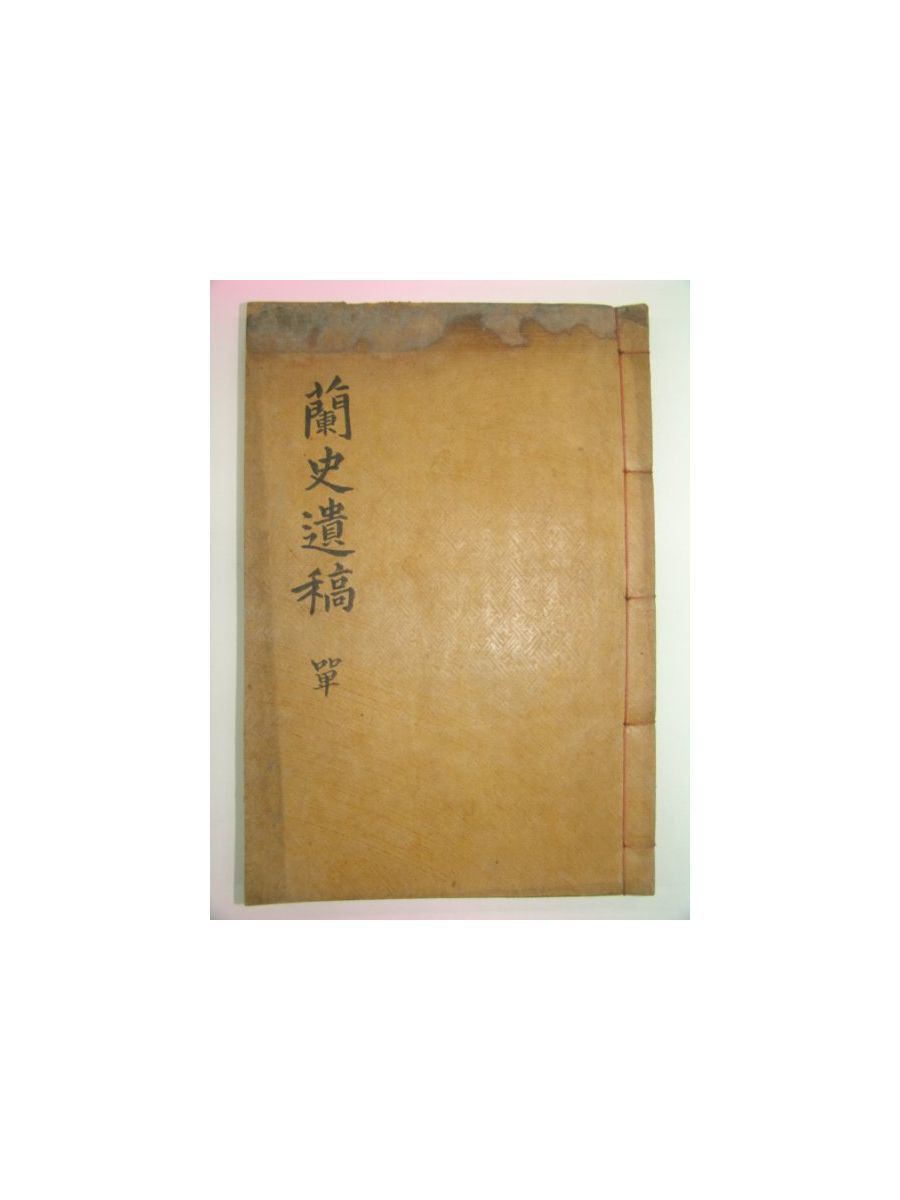 蘭史遺稿 單